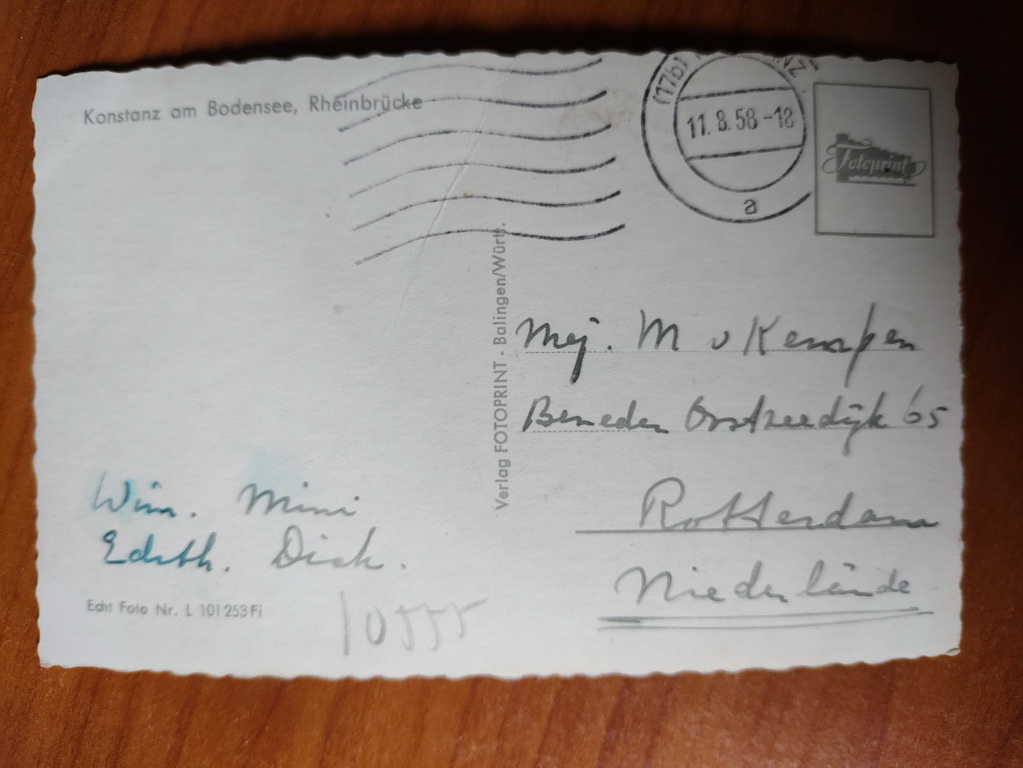 Konstanz am Bodensee, Rheinbrücke
(17b) KONSTANZ
11.8.58-18
a
Fotoprint
Verlag FOTOPRINT - Balingen/Württ.
Mej. M v Kempen
Beneden Oostzeedijk 65
Rotterdam
Niederlände
Wim. Mini
Edith. Dick.
Echt Foto Nr. L 101253 Fi
10555